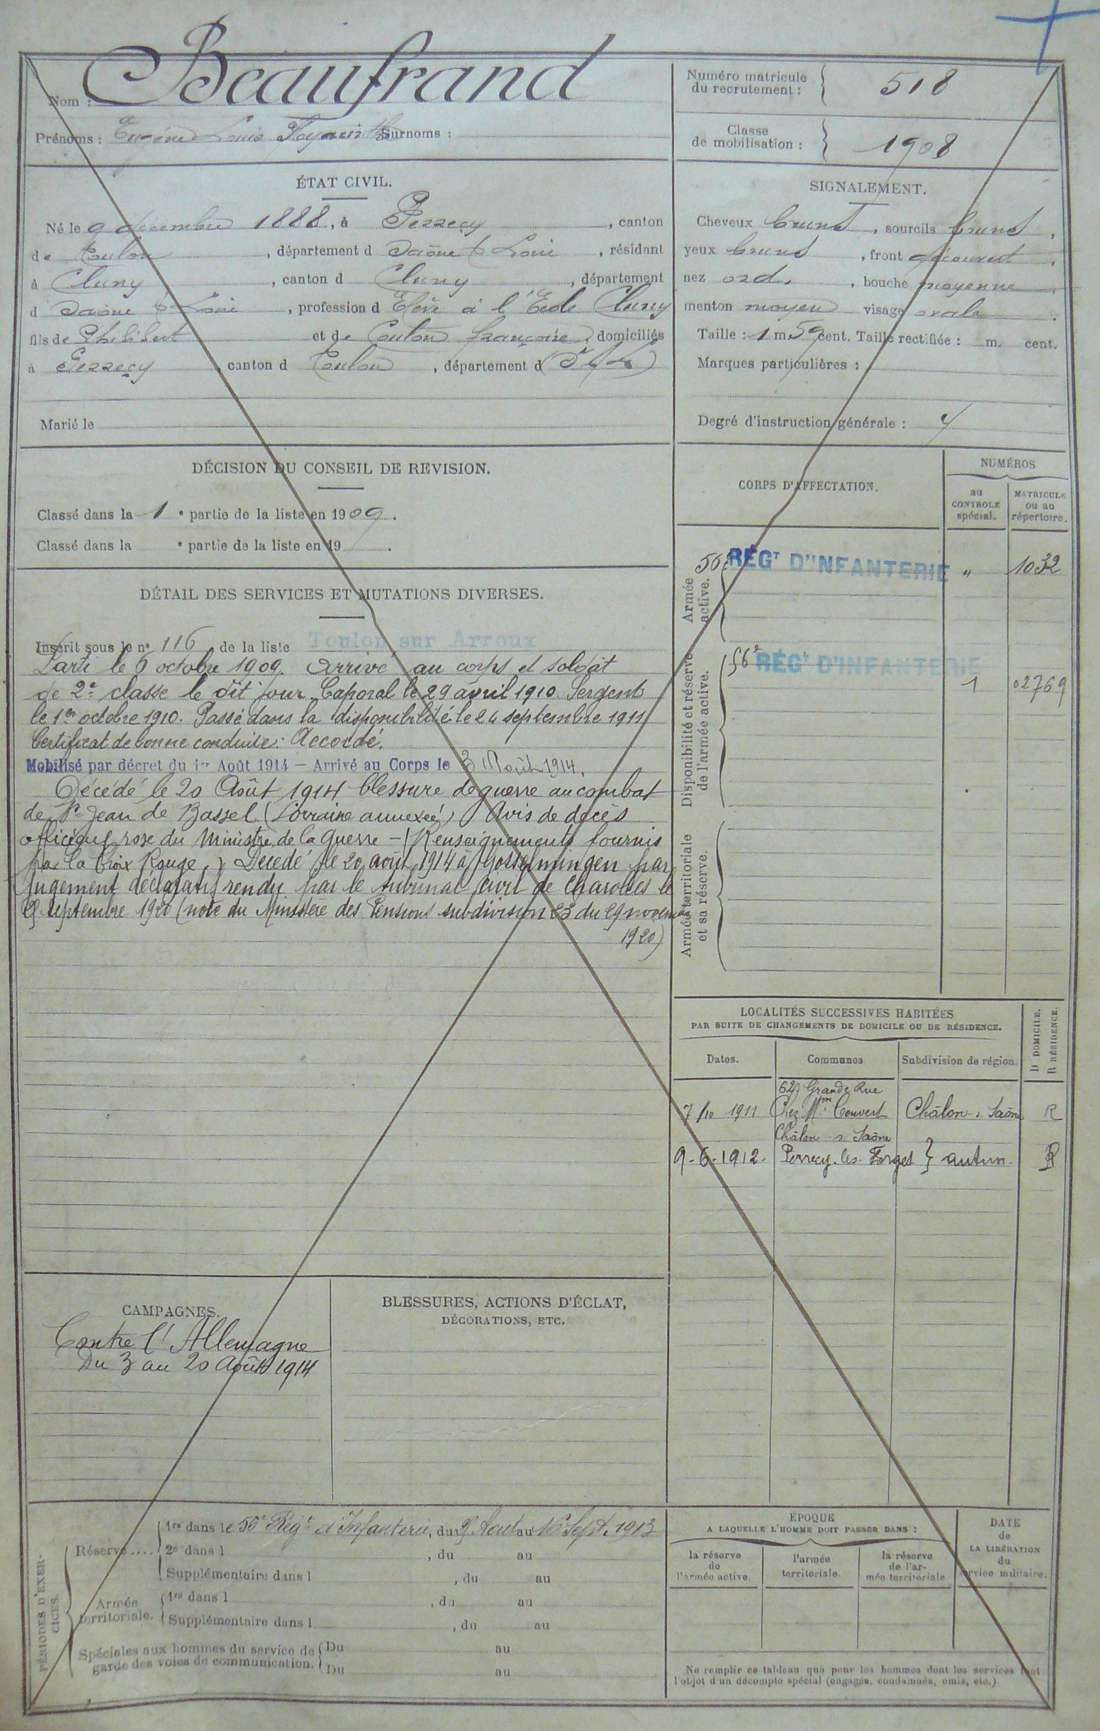 Nom : Beaufrand
Prénoms : Eugène Louis Hyacinthe Surnoms :
Numéro matricule du recrutement : 518
Classe de mobilisation : 1908
ÉTAT CIVIL.
Né le 9 décembre 1888, à Perrecy, canton
de Toulon, département d Saône & Loire, résidant
à Cluny, canton d Cluny, département
d Saône & Loire, profession d Elève à l'Ecole Cluny
fils de Philibert et de Coulon françoise, domiciliés
à Perrecy, canton d Toulon, département d (S & L)
Marié le
SIGNALEMENT.
Cheveux bruns, sourcils bruns,
yeux bruns, front découvert,
nez ord., bouche moyenne
menton moyen visage ovale
Taille : 1 m 59 cent. Taille rectifiée : m. cent.
Marques particulières :
Degré d'instruction générale :
DÉCISION DU CONSEIL DE REVISION.
Classé dans la 1e partie de la liste en 1909.
Classé dans la e partie de la liste en 19
DÉTAIL DES SERVICES ET MUTATIONS DIVERSES.
Inscrit sous le n° 116 de la liste Toulon sur Arroux
Parti le 6 octobre 1909. Arrivé au corps et soldat
de 2e classe le dit jour. Caporal le 29 avril 1910. Sergent
le 1er octobre 1910. Passé dans la disponibilité le 24 septembre 1911
Certificat de bonne conduite : Accordé.
Mobilisé par décret du 1er Août 1914 — Arrivé au Corps le 3 Août 1914.
Décédé le 20 Août 1914 blessure de guerre au combat
de St Jean de Bassel (Lorraine annexée) Avis de décès
officieux rose du Ministre de la Guerre — (Renseignements fournis
par la Croix Rouge) Décédé le 20 août 1914 à Gosselmingen par
jugement déclaratif rendu par le tribunal civil de Charolles le
septembre 1920 (note du Ministère des Pensions subdivision 23 du 29 novembre
1920)
CORPS D'AFFECTATION.
NUMÉROS
au CONTROLE spécial.
MATRICULE ou au répertoire.
Armée active.
56e RÉGT D'INFANTERIE " 1032
Disponibilité et réserve de l'armée active.
56e RÉGt D'INFANTERIE 1 02769
Armée territoriale et sa réserve.
LOCALITÉS SUCCESSIVES HABITÉES
PAR SUITE DE CHANGEMENTS DE DOMICILE OU DE RÉSIDENCE.
D DOMICILE. R RÉSIDENCE.
Dates. Communes Subdivision de région.
62, Grande Rue
7/10 1911 Chez Mme Couvert Châlon s. Saône R
Châlon s. Saône
9-6-1912. Perrecy-les-Forges } autun. R
CAMPAGNES.
Contre l'Allemagne
Du 3 au 20 Août 1914
BLESSURES, ACTIONS D'ÉCLAT,
DÉCORATIONS, ETC.
PÉRIODES D'EXERCICES.
Réserve....
1re dans le 56e Régt d'Infanterie, du Août au 10 Sept. 1913
2e dans l , du au
Supplémentaire dans l , du au
Armée territoriale.
1re dans l , du au
Supplémentaire dans l , du au
Spéciales aux hommes du service de garde des voies de communication.
Du au
Du au
EPOQUE
A LAQUELLE L'HOMME DOIT PASSER DANS :
la réserve de l'armée active.
l'armée territoriale.
la réserve de l'armée territoriale.
DATE de LA LIBÉRATION du service militaire.
Ne remplir ce tableau que pour les hommes dont les services font
l'objet d'un décompte spécial (engagés, condamnés, omis, etc.)